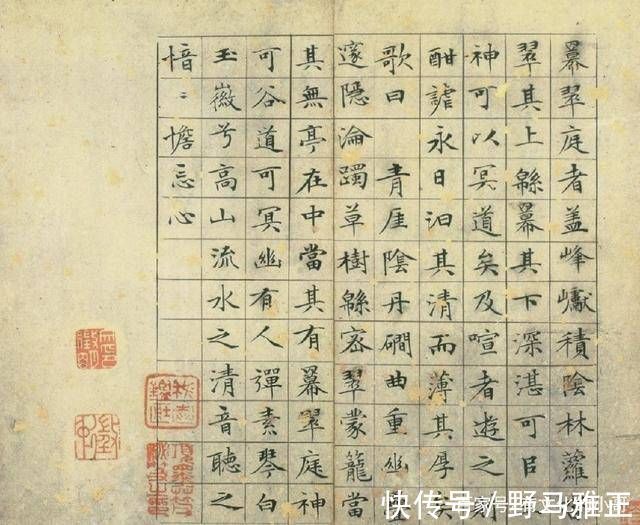 羃翠庭者蓋峰巘積陰林蘿
翠其上緜羃其下深湛可㠯
神可以冥道矣及喧者遊之
酣謔永日汩其清而薄其厚
歌曰 青崖陰丹磵曲重幽
邃隱淪躅草樹緜密翠蒙籠當
其無亭在中當其有羃翠庭神
可谷道可冥幽有人彈素琴白
玉徽兮高山流水之清音聽之
愔〻憺忘心
快传号/野马雅正